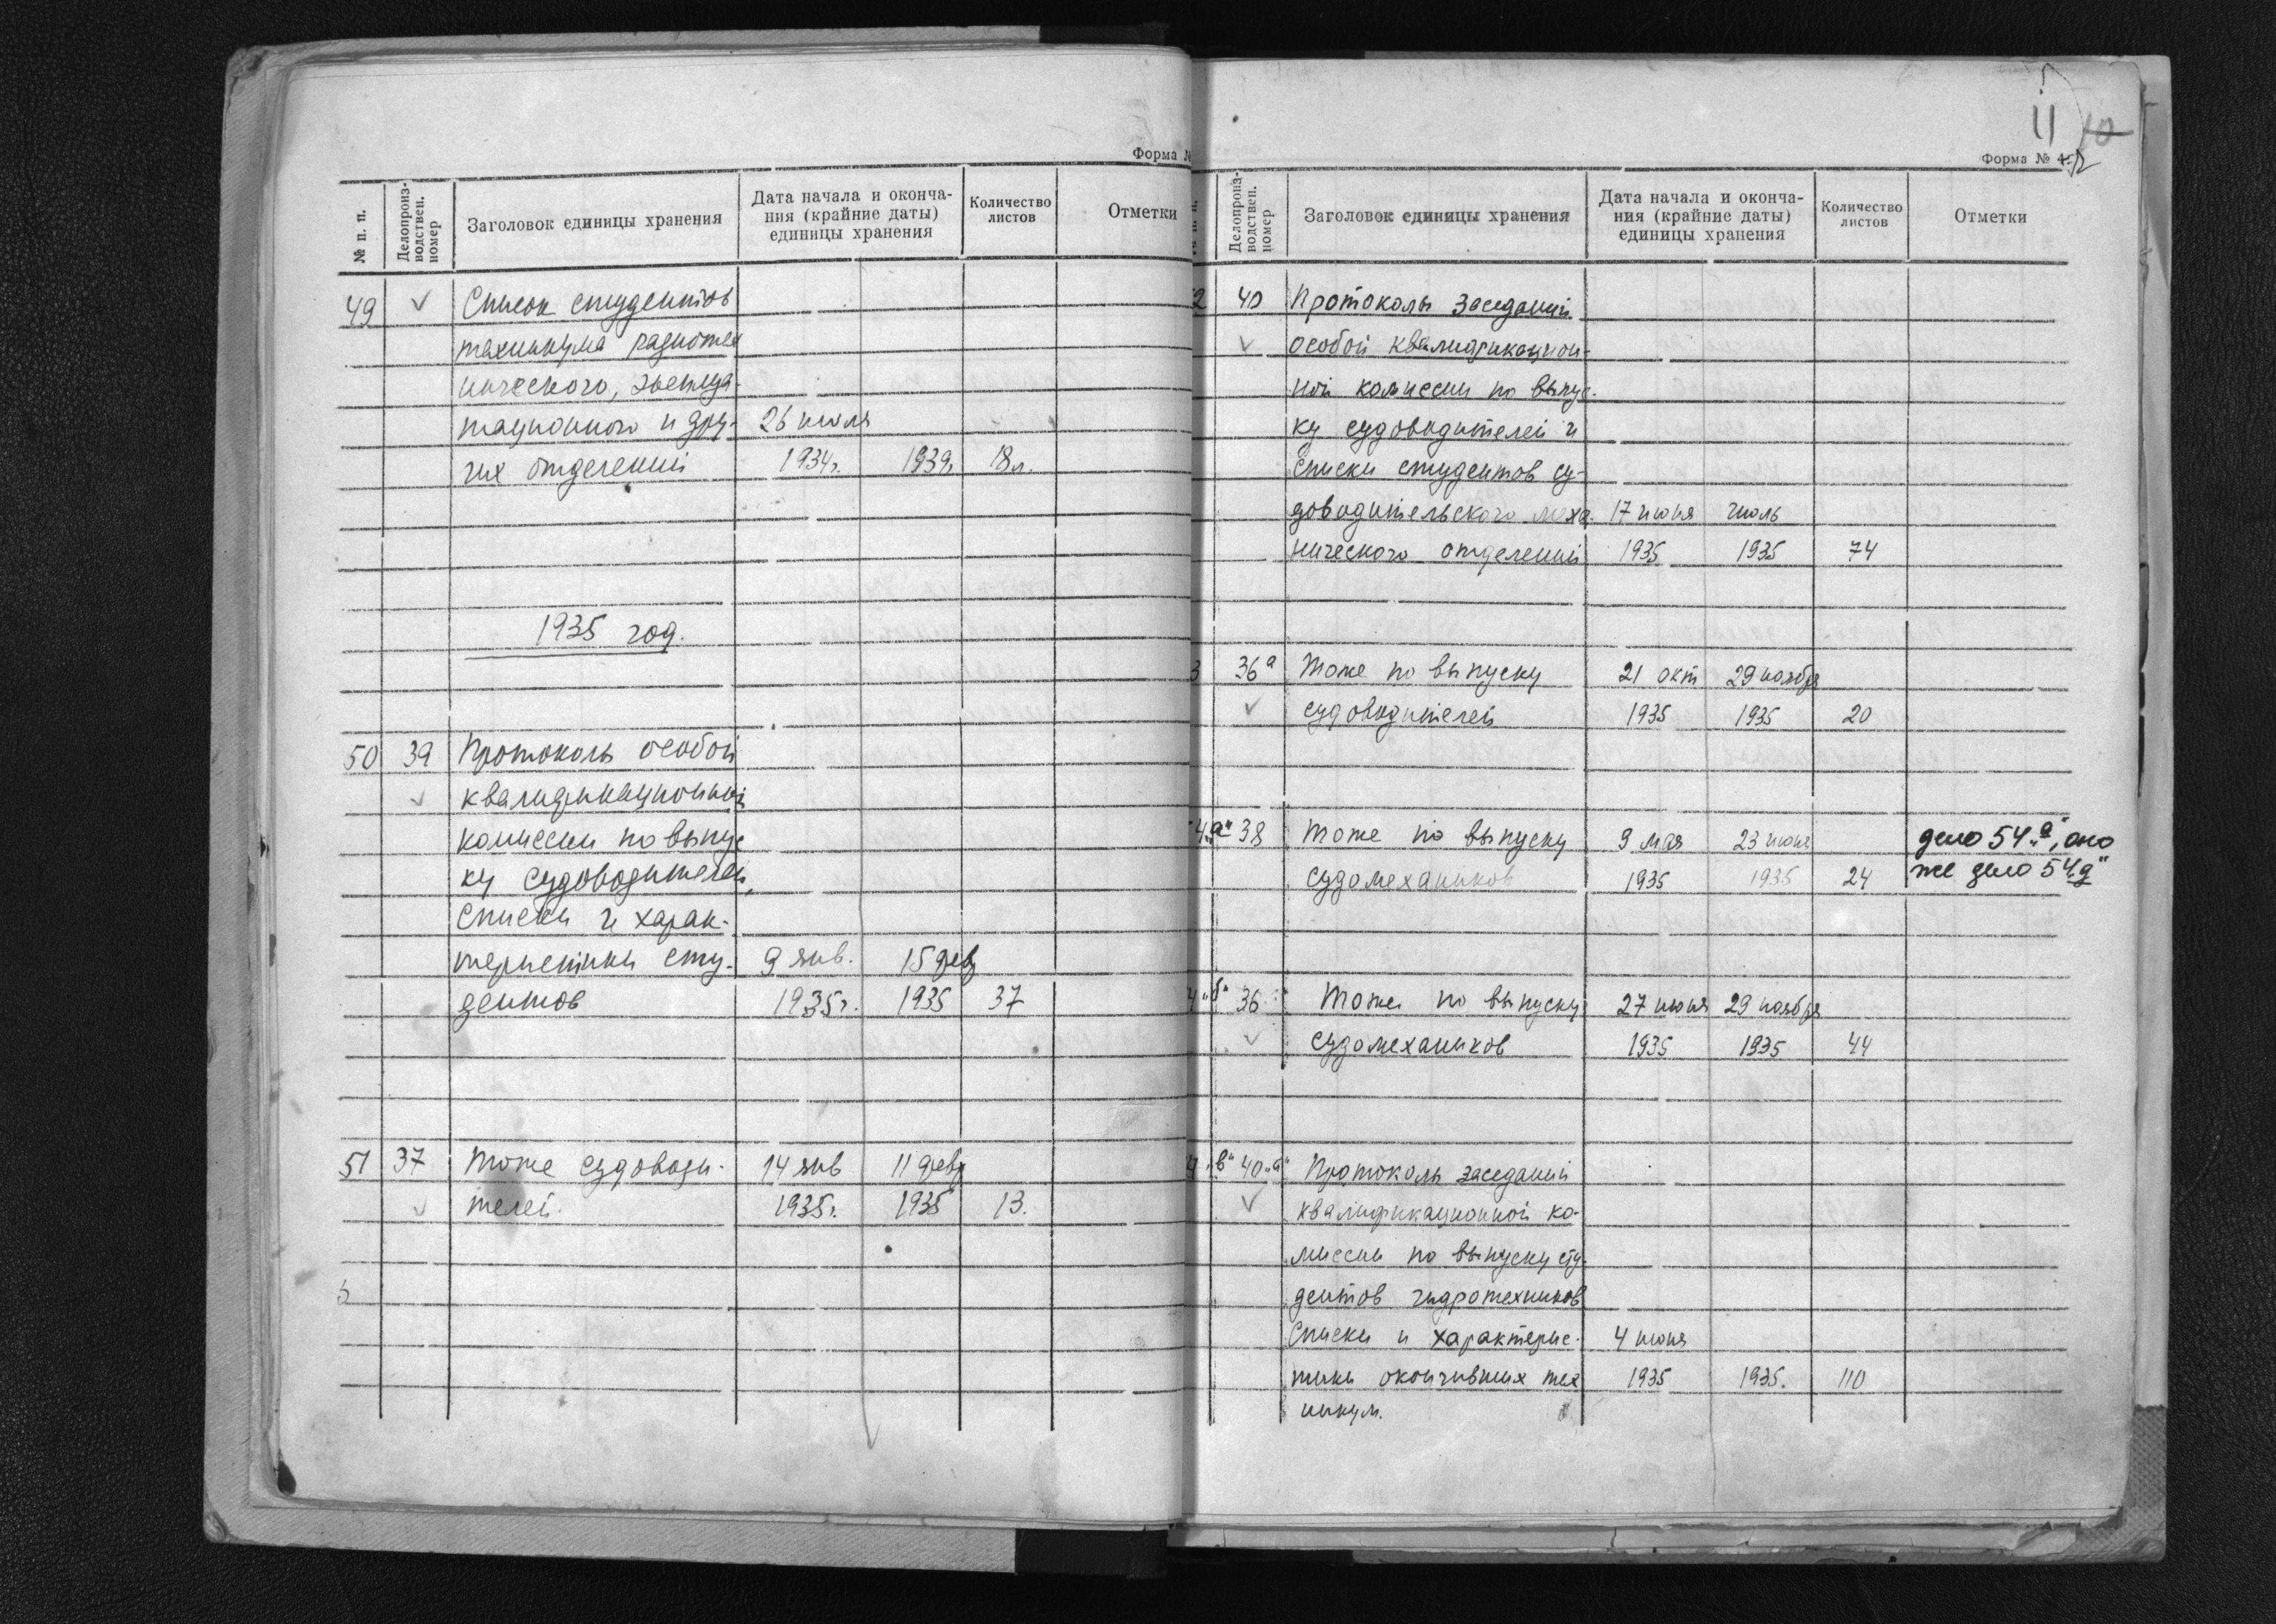 Форма №
№ п. п.
Делопроиз-
водствен.
номер
Заголовок единицы хранения
Дата начала и оконча-
ния (крайние даты)
единицы хранения
Количество
листов
Отметки
49 ✓ Список студентов
техникума радиотех
нического, эксплуа-
тационного и дру- 26 июля
гих отделений 1934г. 1939г. 18л.
1935 год.
50 39 Протоколы особой
✓ квалификационной
комиссии по выпус
ку судоводителей,
списки и харак-
теристики сту- 9 янв. 15 фев
дентов 1935г. 1935 37
51 37 Тоже судоводи- 14 янв 11 февр
✓ телей. 1935г. 1935 13.
11 10
Форма № 12
№ п. п.
Делопроиз-
водствен.
номер
Заголовок единицы хранения
Дата начала и оконча-
ния (крайние даты)
единицы хранения
Количество
листов
Отметки
2 40 Протоколы заседаний
✓ особой квалификацион-
ной комиссии по выпус-
ку судоводителей и
списки студентов су-
доводительского меха- 17 июня июль
нического отделений 1935 1935 74
3 36а Тоже по выпуску 21 окт 29 ноября
✓ судоводителей 1935 1935 20
4„а“ 38 Тоже по выпуску 9 мая 23 июня дело 54„а“, оно
судомехаников 1935 1935 24 же дело 54„д“
4„б“ 36 Тоже по выпуску 27 июня 29 ноября
✓ судомехаников 1935 1935 44
4„в“ 40„а“ Протоколы заседаний
✓ квалификационной ко-
миссии по выпуску сту-
дентов гидротехников
Списки и характерис- 4 июня
тики окончивших тех 1935 1935. 110
никум.